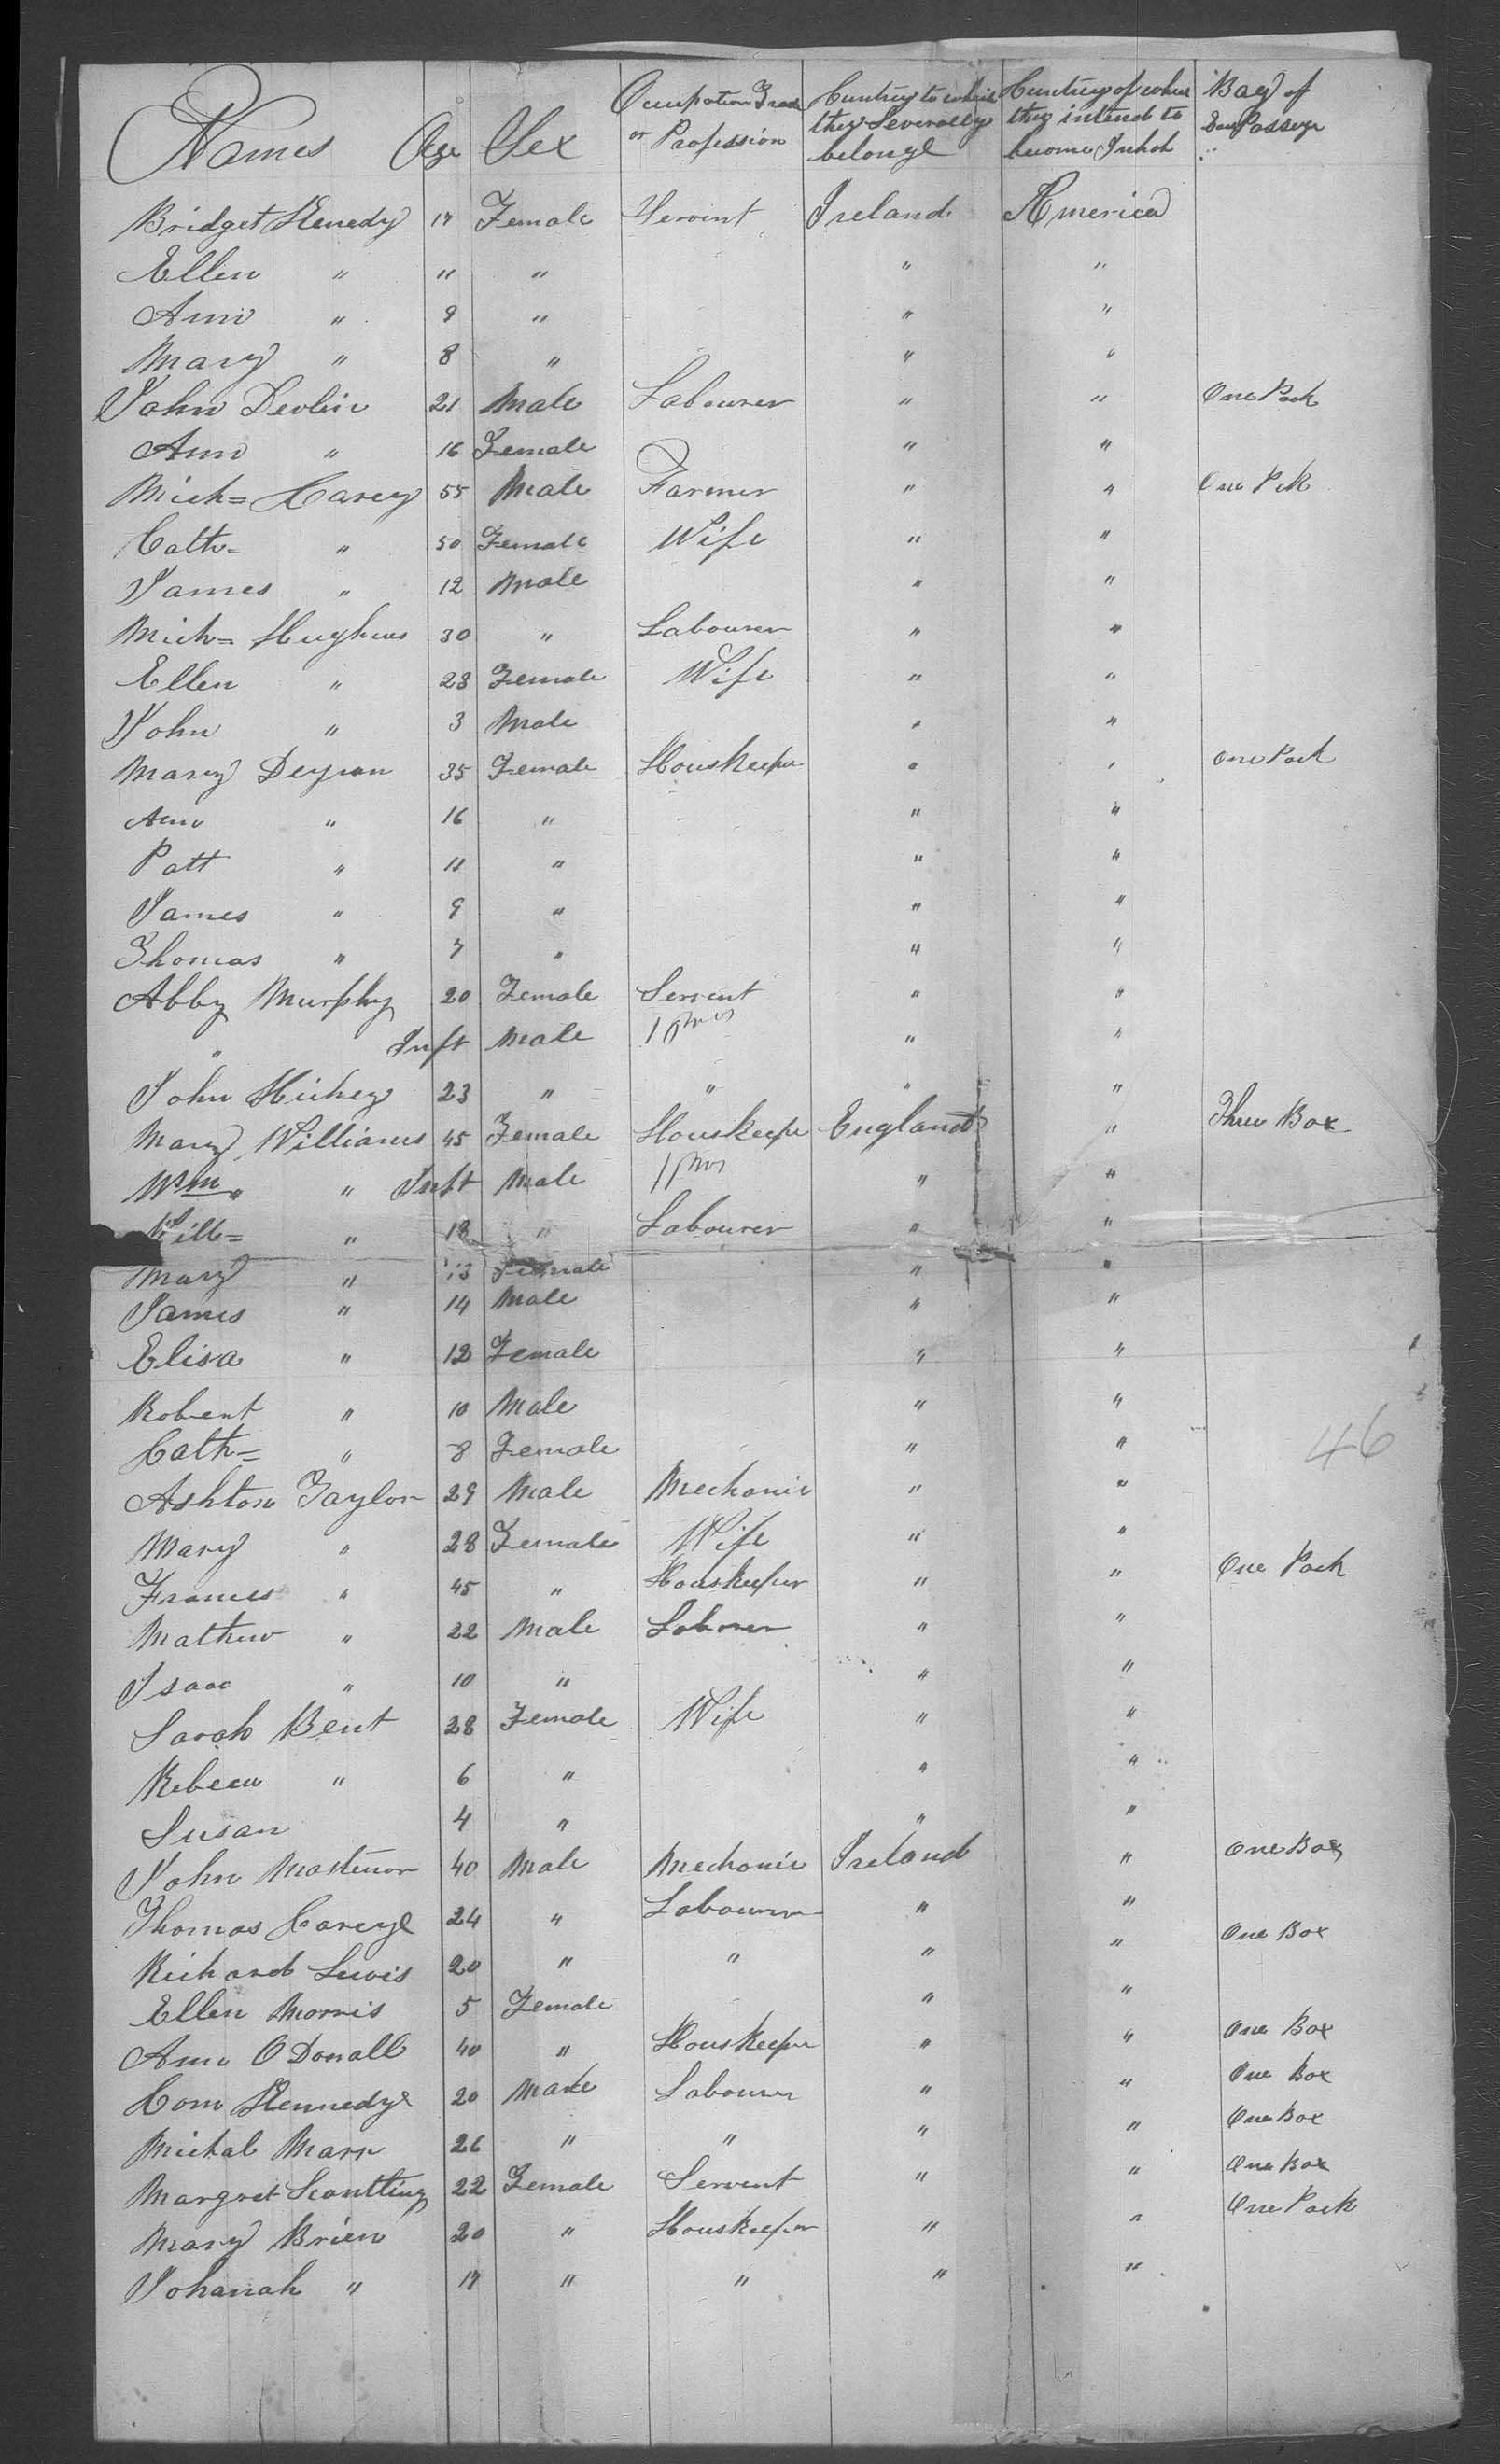 Names Age Sex Ocupation Trade or Profession Cuntry to which they Severally belonge Cuntry of whch they intend to become Inhab Bag of Passage
Bridget Kenedy 17 Female Servent Ireland America
Ellen " 11 " " "
Ann " 9 " " "
Mary " 8 " " "
John Devlin 21 Male Labourer " " One Pack
Ann " 16 Female " "
Mich= Carey 55 Male Farmer " " One Pck
Cath= " 50 Female Wife " "
James " 12 Male " "
Mich= Hughes 30 " Labourer " "
Ellen " 28 Female Wife " "
John " 3 Male " "
Mary Degnan 35 Female Houskeeper " " One Pack
Ann " 16 " " "
Patt " 11 " " "
James " 9 " " "
Thomas " 7 " " "
Abby Murphy 20 Female Servent " "
" Inft Male 10 mos " "
John Hickey 23 " " " "
Mary Williams 45 Female Houskeepe England " Three Box
Wm " " Inft Male 11 mos " "
Will= " 18 " Labourer " "
Mary " 13 Female " "
James " 14 Male " "
Elisa " 12 Female " "
Robert " 10 Male " "
Cath= " 8 Female " "
46
Ashton Taylor 29 Male Mechanic " "
Mary " 28 Female Wife " "
Frances " 45 " Houskeeper " " One Pack
Mathew " 22 Male Laborer " "
Isaac " 10 " " "
Sarah Bent 28 Female Wife " "
Rebeca " 6 " " "
Susan 4 " " "
John Mastenor 40 Male Mechanic Ireland " One Box
Thomas Carey 24 " Labourer " "
Richard Lewis 20 " " " " One Box
Ellen Morris 5 Female " "
Ann O Donall 40 " Houskeeper " " One Box
Com Kennedy 20 Male Labourer " " One Box
Michal Marr 26 " " " " One Box
Margret Scantling 22 Female Servent " " One Box
Mary Brien 20 " Houskeeper " " One Pack
Johanah " 17 " " " "